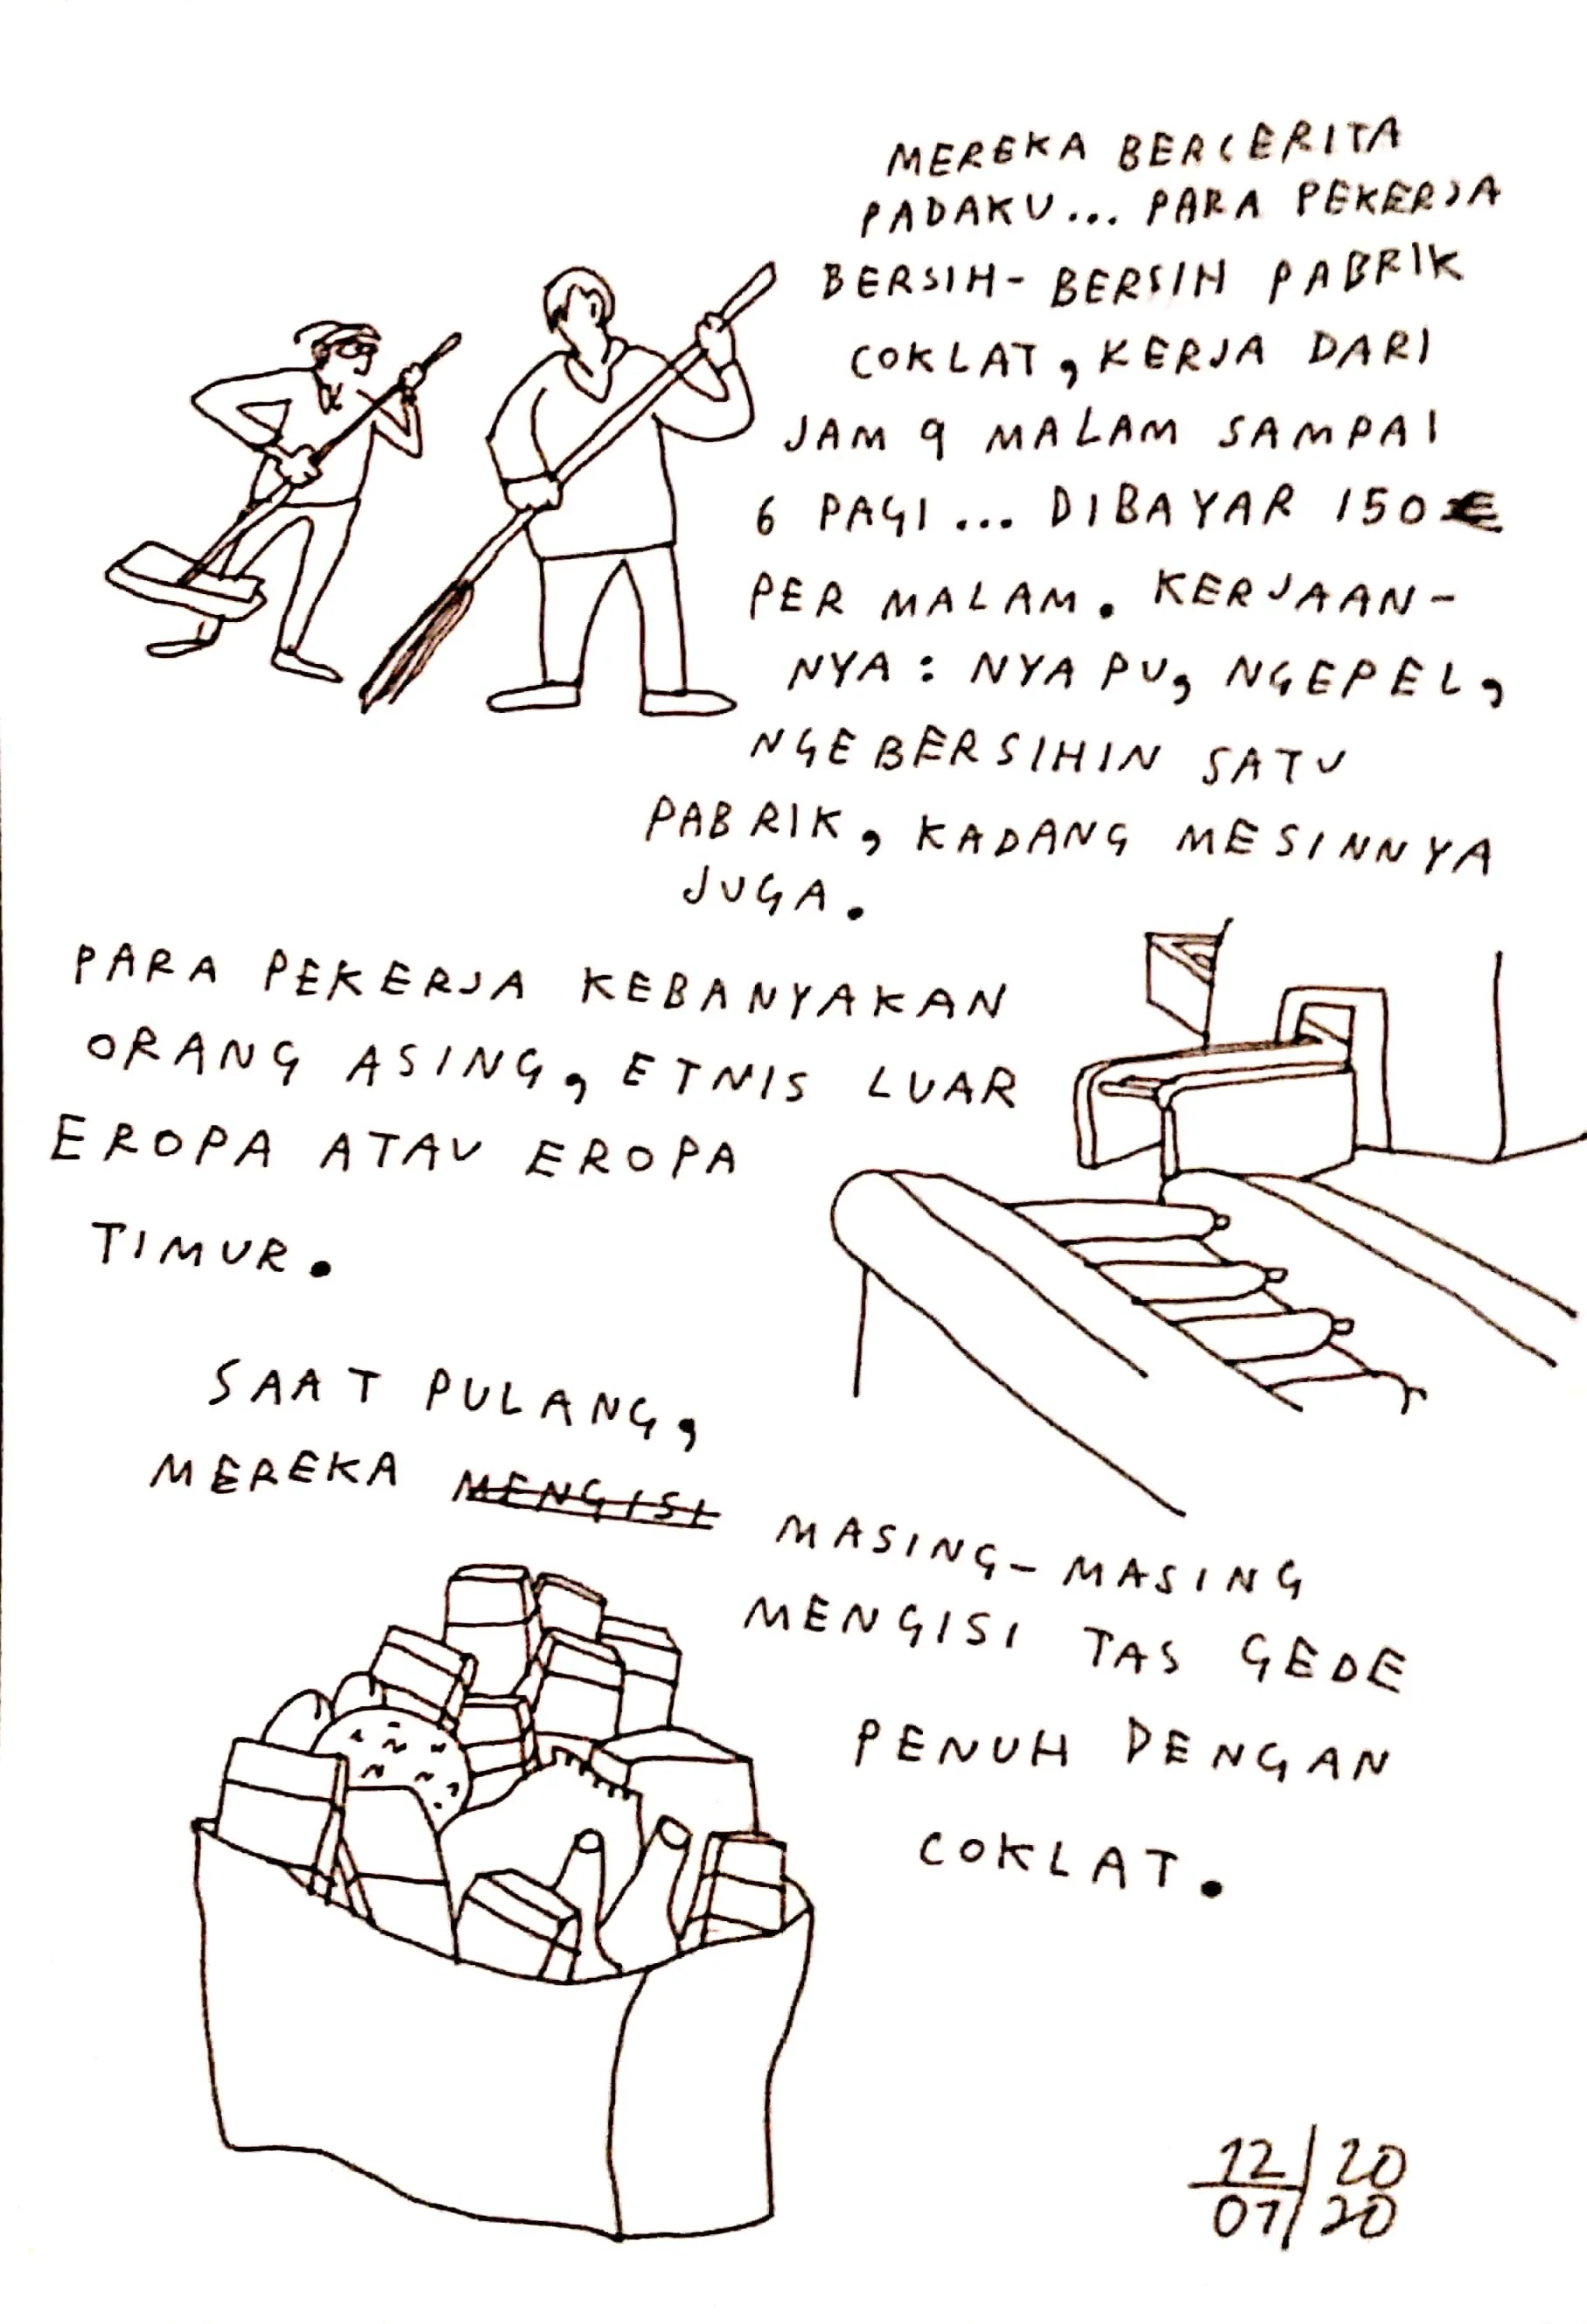 MEREKA BERCERITA
PADAKU... PARA PEKERJA
BERSIH-BERSIH PABRIK
COKLAT, KERJA DARI
JAM 9 MALAM SAMPAI
6 PAGI... DIBAYAR 150€
PER MALAM. KERJAAN-
NYA: NYAPU, NGEPEL,
NGEBERSIHIN SATU
PABRIK, KADANG MESINNYA
JUGA.
PARA PEKERJA KEBANYAKAN
ORANG ASING, ETNIS LUAR
EROPA ATAU EROPA
TIMUR.
SAAT PULANG,
MEREKA MENGISI MASING-MASING
MENGISI TAS GEDE
PENUH DENGAN
COKLAT.
12/20
07/20